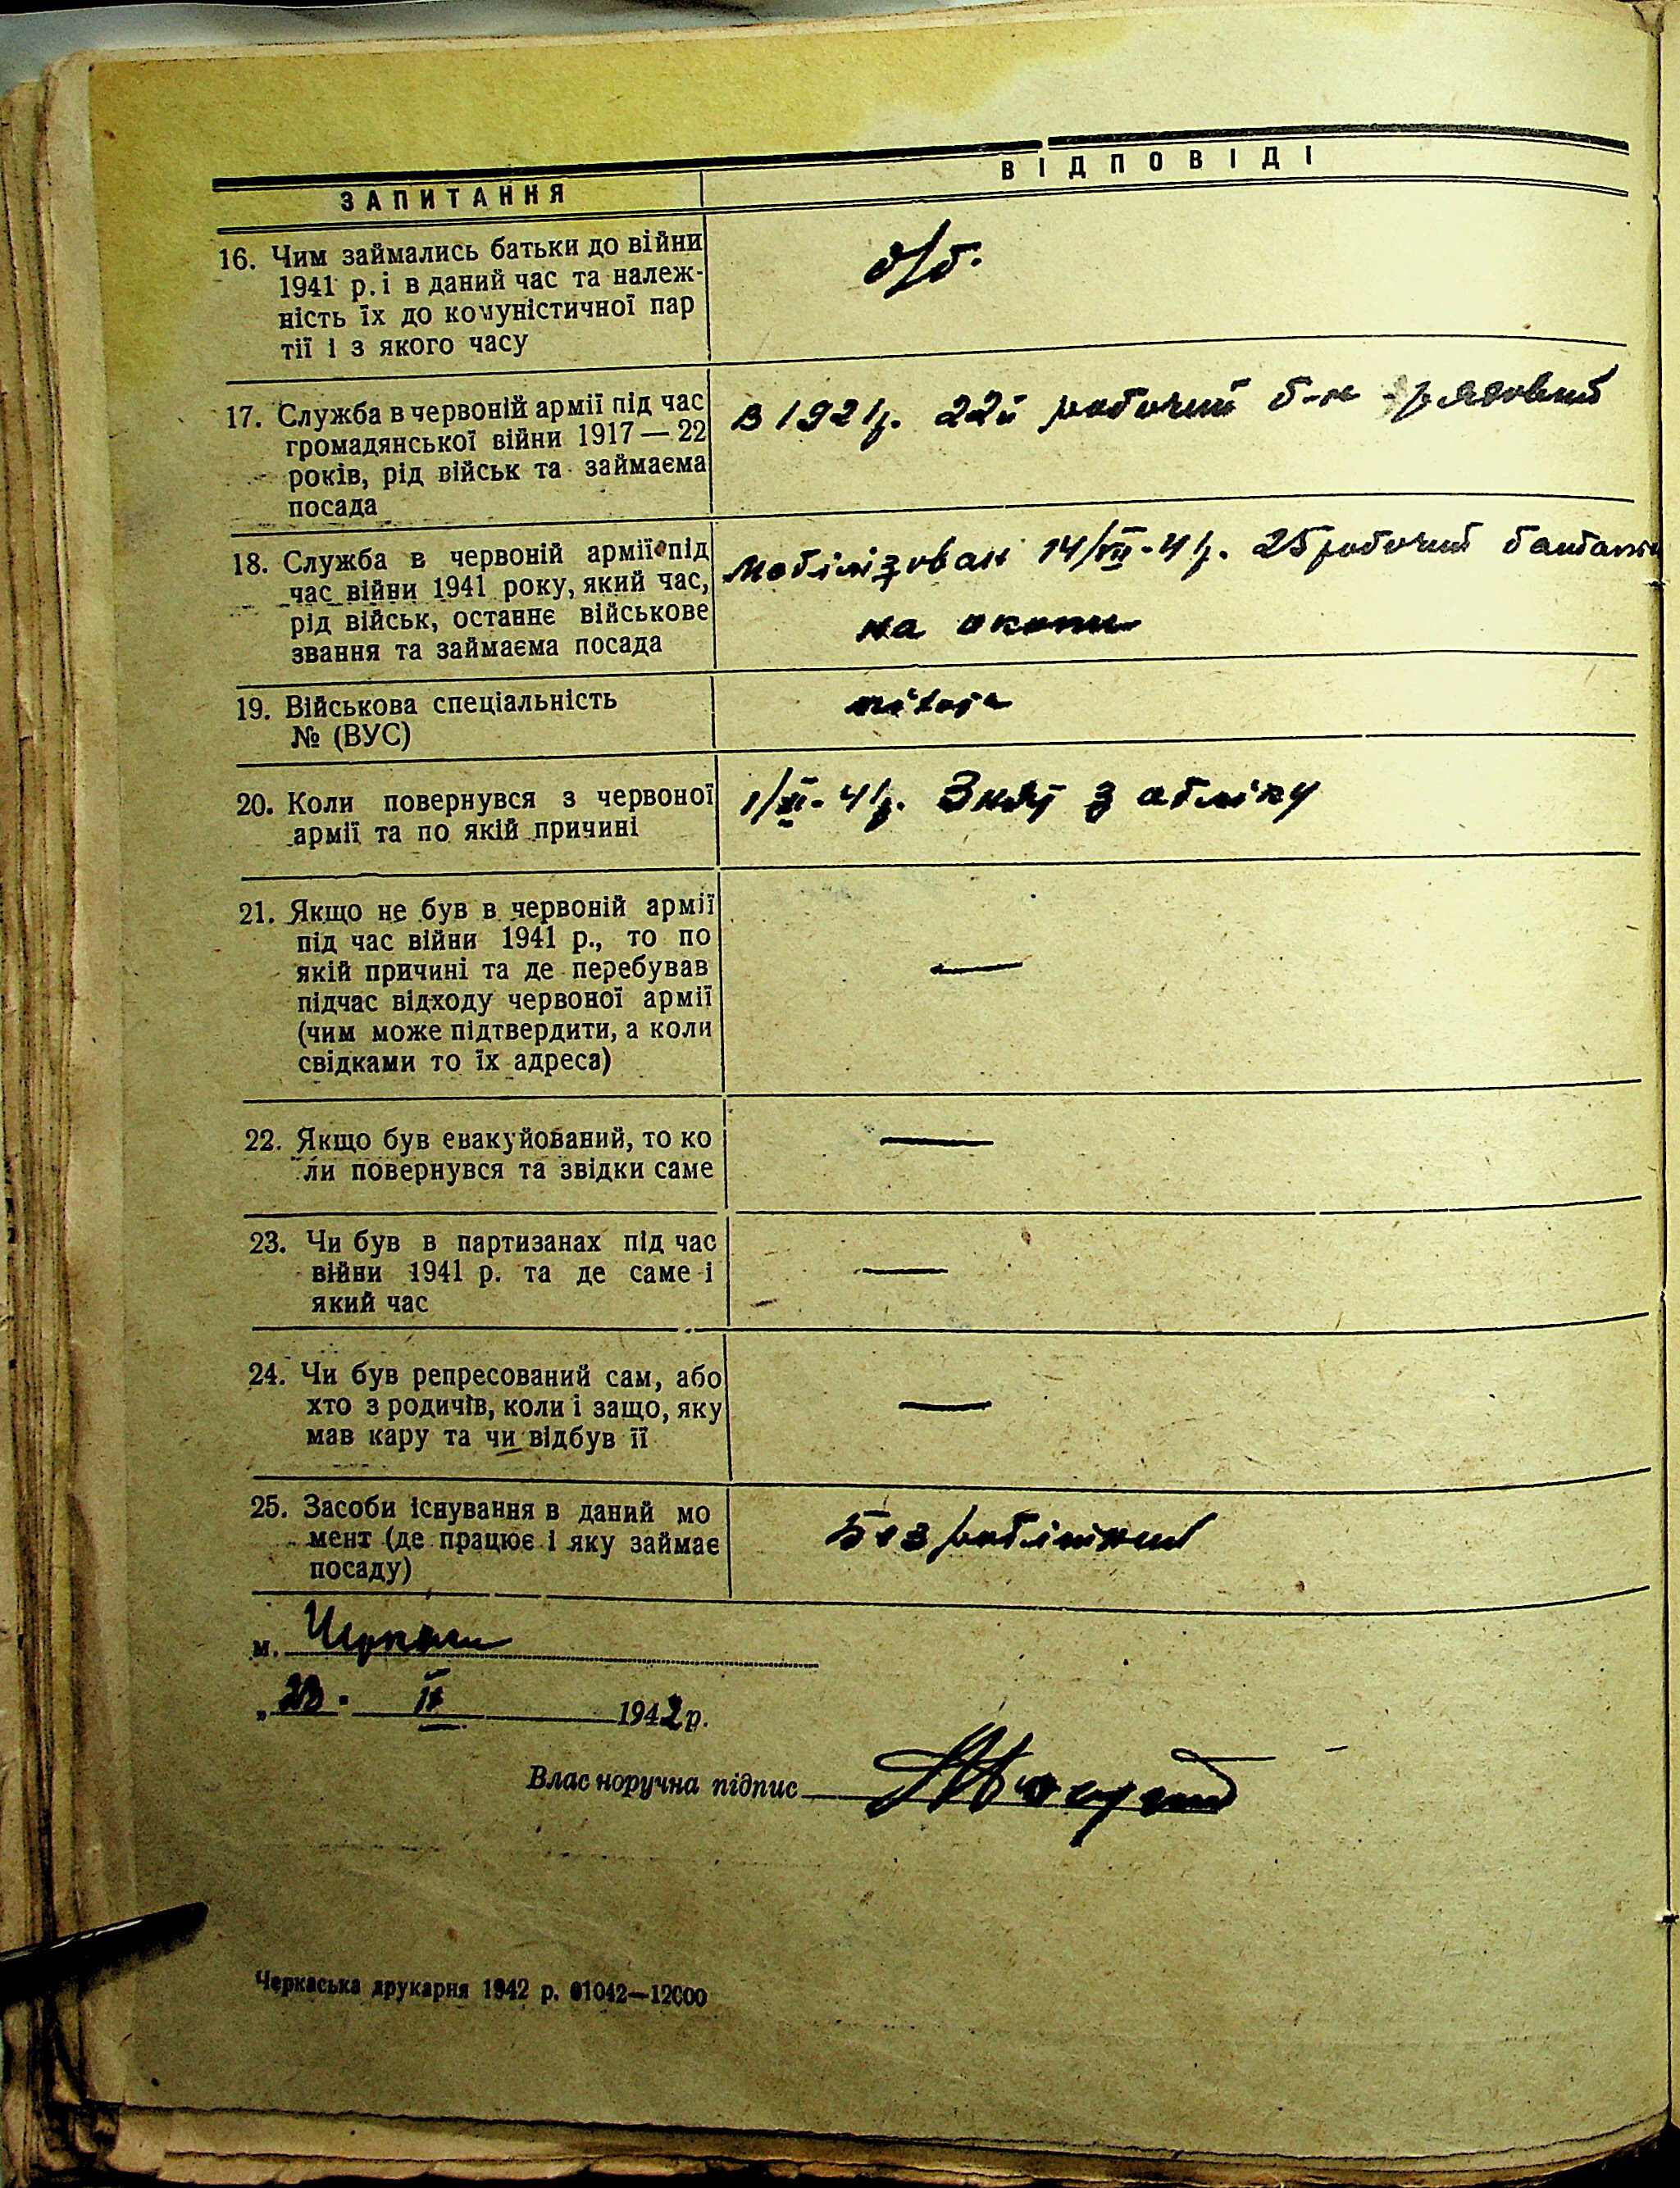 ЗАПИТАННЯ
ВІДПОВІДІ
16. Чим займались батьки до війни
1941 р. і в даний час та належ-
ність їх до комуністичної пар
тії і з якого часу
б/б.
17. Служба в червоній армії під час
громадянської війни 1917—22
років, рід військ та займаєма
посада
В 1921р. 22й робочий б-н рядовий
18. Служба в червоній армії під
час війни 1941 року, який час,
рід військ, останнє військове
звання та займаєма посада
Мобілізован 14/VII-41р. 25 робочий
на окопи
19. Військова спеціальність
№ (ВУС)
20. Коли повернувся з червоної
армії та по якій причині
1/XI-41р. Знят з обліку
21. Якщо не був в червоній армії
під час війни 1941 р., то по
якій причині та де перебував
підчас відходу червоної армії
(чим може підтвердити, а коли
свідками то їх адреса)
—
22. Якщо був евакуйований, то ко
ли повернувся та звідки саме
—
23. Чи був в партизанах під час
війни 1941 р. та де саме і
який час
—
24. Чи був репресований сам, або
хто з родичів, коли і защо, яку
мав кару та чи відбув її
—
25. Засоби існування в даний мо
мент (де працює і яку займає
посаду)
Безробітний
м. Черкаси
1942 р.
Власноручна підпис
Черкаська друкарня 1942 р. 01042—12000